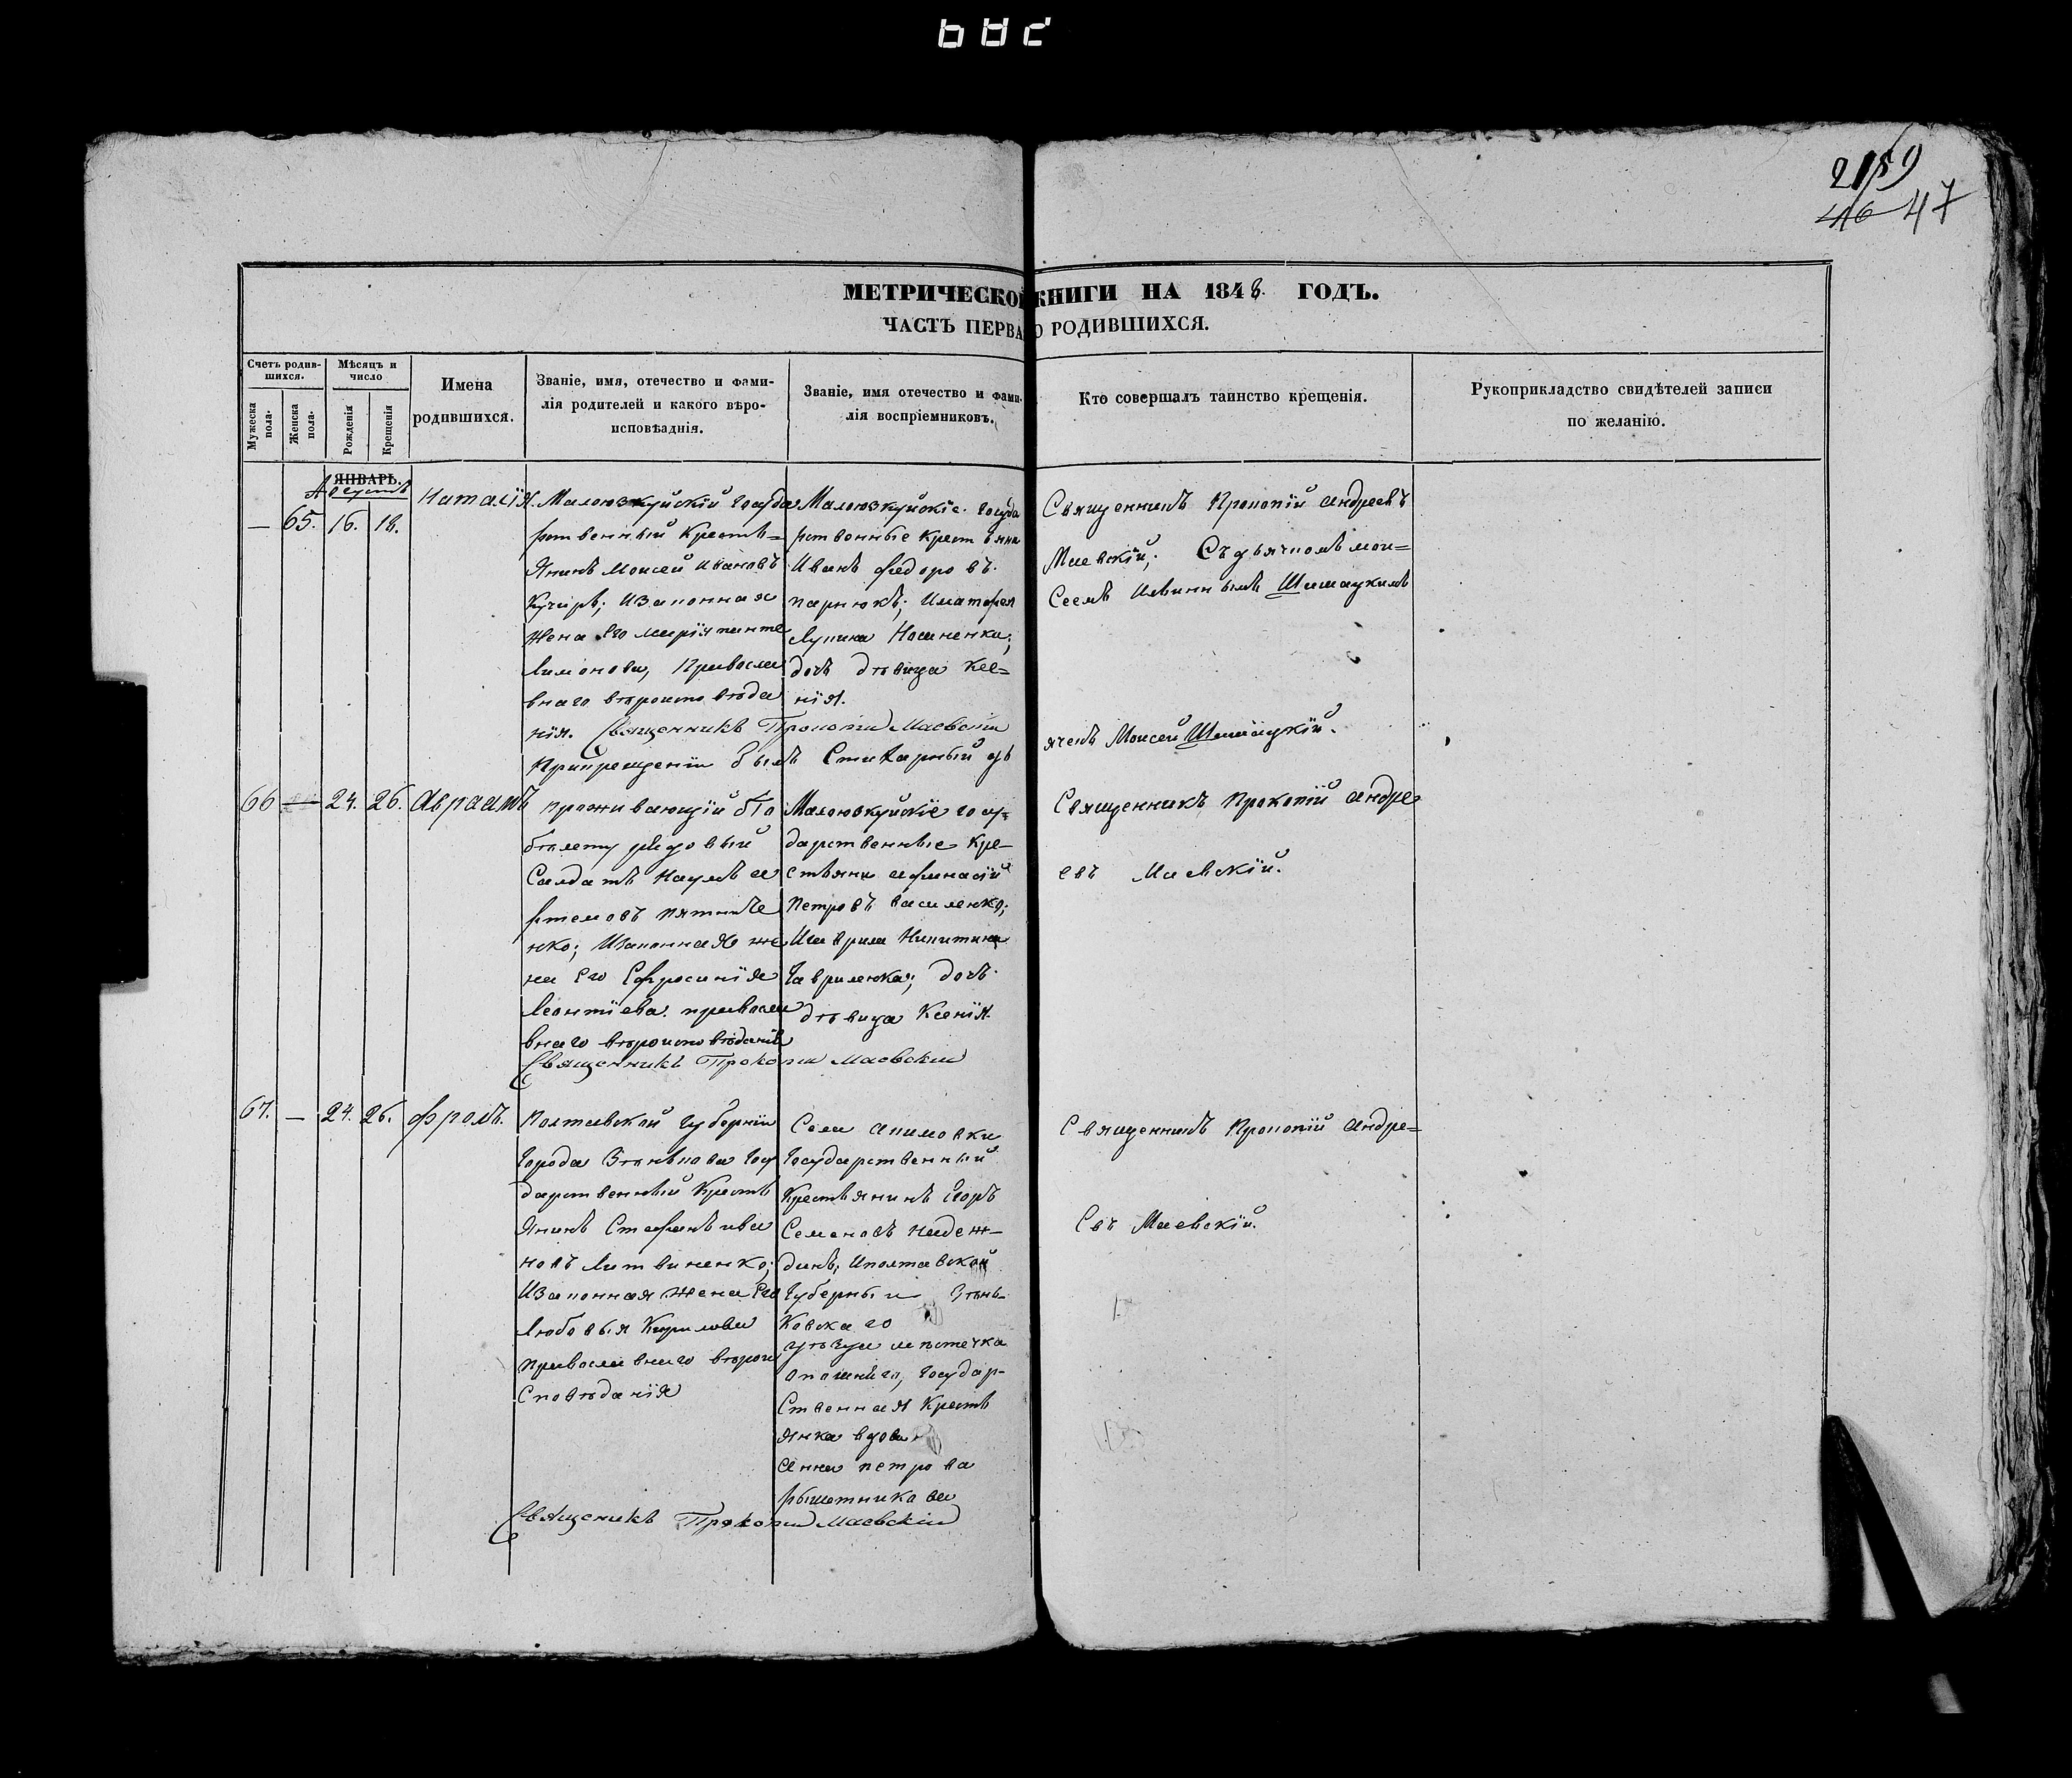 2159
46 47
МЕТРИЧЕСКОЙ КНИГИ НА 1848. ГОДЪ.
ЧАСТЬ ПЕРВА О РОДИВШИХСЯ.
Счетъ родив-
шихся.
Мужеска пола.
Женска пола.
Мѣсяцъ и
число
Рожденія
Крещенія
Имена
родившихся.
Званіе, имя, отечество и фами-
лія родителей и какого вѣро-
исповѣаднія.
Званіе, имя отечество и фами-
лія воспріемниковъ.
Кто совершалъ таинство крещенія.
Рукоприкладство свидѣтелей записи
по желанію.
ЯНВАРЬ.
Августъ
— 65. 16. 18.
Наталія.
Малоюзкуйскій Госуда
рственный Крестъ=
Янинъ Моисей Ивановъ
Кучиръ; Изаконная
жена Его Марія панте
лимонова, Правосла
внаго вѣроисповѣда
нія. Священникъ Прокопій Маевскій
Прикрещеніи былъ Стихарный дь
Малоюзкуйскіе Госуда
рственные Крестьяни
Иванъ Федоровъ
парнюкъ;
дочь дѣвица Ксе=
нія.
Священникъ Прокопій Андреевъ
Маевскій; Съдьячкомъ мои=
Сеемъ
ячекъ Моисей Шишацкій.
66 — 24. 26. Авраамъ
проживающій по
билету рядовый
Салдатъ Наумъ а
ртемовъ пятниче
нко; Изаконная же
на Его Ефросинія
Леонтіева. правосла
внаго вѣроисповѣданія
Священникъ Прокопій Маевскій
Малоюзкуйскіе госу=
дарственные Кре-
стьяни афанасій
петровъ василенко;
Игаврила Никитина
Гавриленка; дочь
дѣвица Ксенія.
Священникъ Прокопій Андре
евъ Маевскій.
67. — 24. 26. Фролъ.
Полтавской Губерніи
Города Зѣнькова Госу
дарственный Кресть
Янинъ Стефанъ ива
новъ Литвиненко;
Изаконная жена Его
Любовья Кирилова
православнаго вѣрои
Сповѣданія
Села акимовки
Государственный
Крестьянинъ Егоръ
Семеновъ Надеж-
динъ, Иполтавской
Губерніи Зѣнь-
Ковскаго
уѣзда мѣстечка
опошнаго, Государ-
Ственная Кресть
янка вдова
Анна петрова
рышетникова
Священикъ Прокопій Маевскій
Священникъ Прокопій Андре=
Евъ Маевскій.